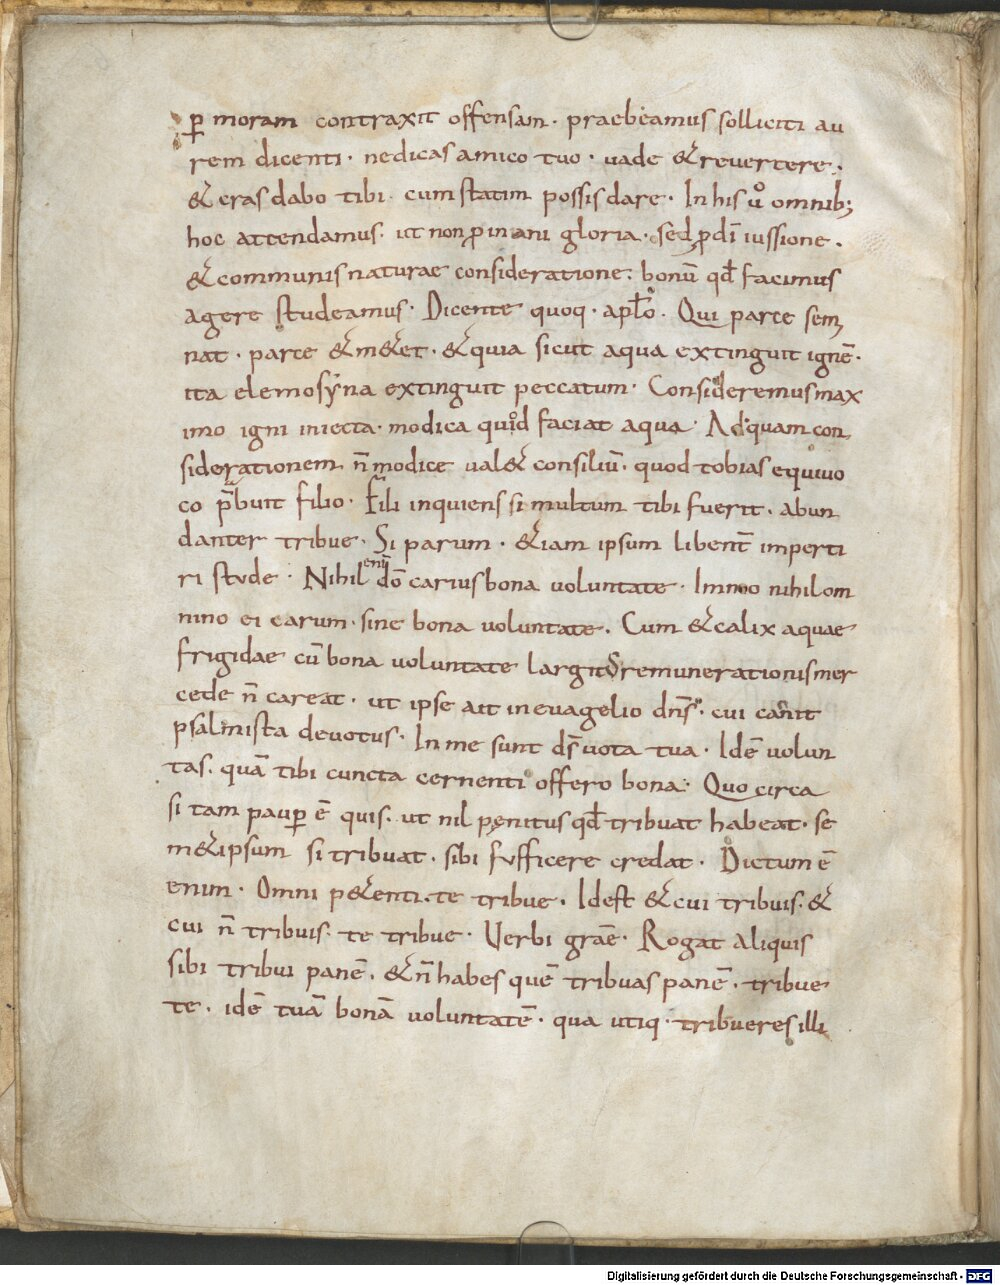 p̲ moram contraxit offensam · praebeamus solliciti au
rem dicenti · nedicas amico tuo · uade & reuertere ·
& cras dabo tibi · cum statim possis dare · In his u͛o omnib;
hoc attendamus · ut non ꝓ inani gloria · sed ꝓ dī iussione ·
& communis naturae consideratione · bonū qđ facimus
agere studeamus · Dicente quoq · aplo · Qui parce semi
nat · parce & m&et · & quia sicut aqua extinguit ignē ·
ita elemosyna extinguit peccatum · Consideremus max
imo igni iniecta · modica quid faciat aqua · Ad quam con
siderationem n̄ modice ual& consiliū · quod tobias equiuo
co p̄buit filio · Fili inquiens si multum tibi fuerit · abun
danter tribue · Si parum · &iam ipsum libent̄ imperti
ri stude · Nihil eni dō carius bona uoluntate · Immo nihil om
nino ei carum · sine bona uoluntate · Cum & calix aquae
frigidae cū bona uoluntate largitus remunerationis mer
cede n̄ careat · ut ipse ait in euagelio dn̄s · cui canit
psalmista deuotus · In me sunt d̄s uota tua · Idē uolun
tas · quā tibi cuncta cernenti offero bona · Quo circa
si tam paup̲ ē quis · ut nil penitus qđ tribuat habeat · se
m&ipsum si tribuat · sibi sufficere credat · Dictum ē
enim · Omni p&enti · te tribue · Idest & cui tribuis · &
cui n̄ tribuis · te tribue · Uerbi graē · Rogat aliquis
sibi tribui panē · & n̄ habes quē tribuas panē · tribue
te · idē tuā bonā uoluntatē · qua utiq · tribueres illi
Digitalisierung gefördert durch die Deutsche Forschungsgemeinschaft - DFG